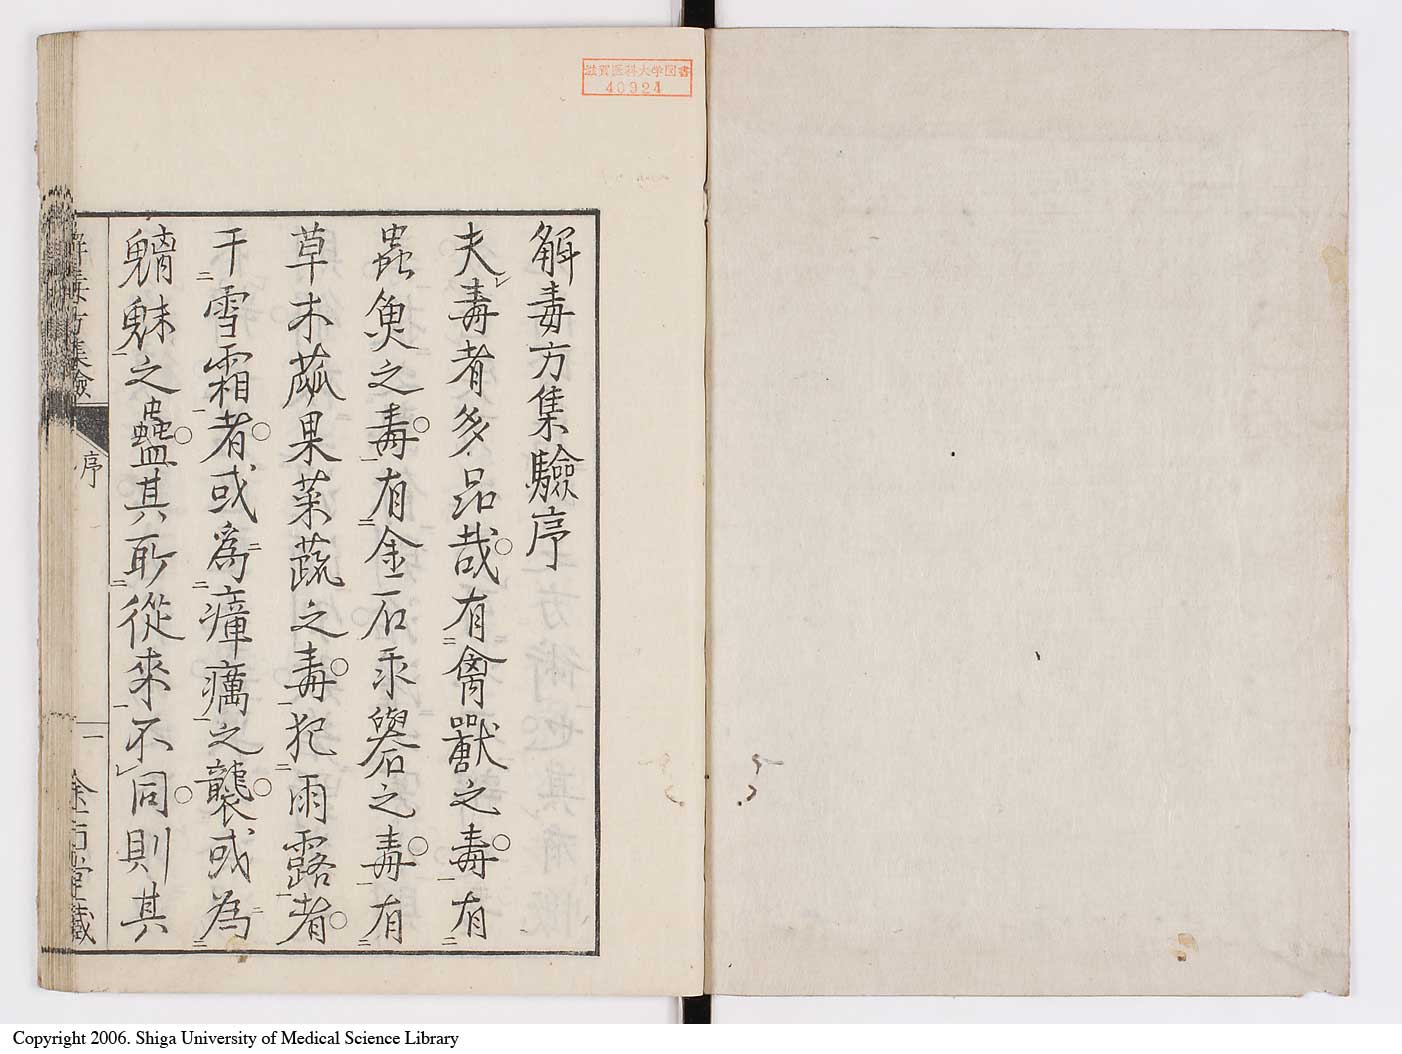 滋賀医科大学図書
40924
解毒方集驗序
夫毒者多品哉有禽獸之毒有
蟲魚之毒有金石汞礜之毒有
草木蓏果菜蔬之毒犯雨露者
干雪霜者或爲瘴癘之襲或為
魑魅之蠱其所從来不同則其
解毒方集驗
序
一
Copyright 2006. Shiga University of Medical Science Library